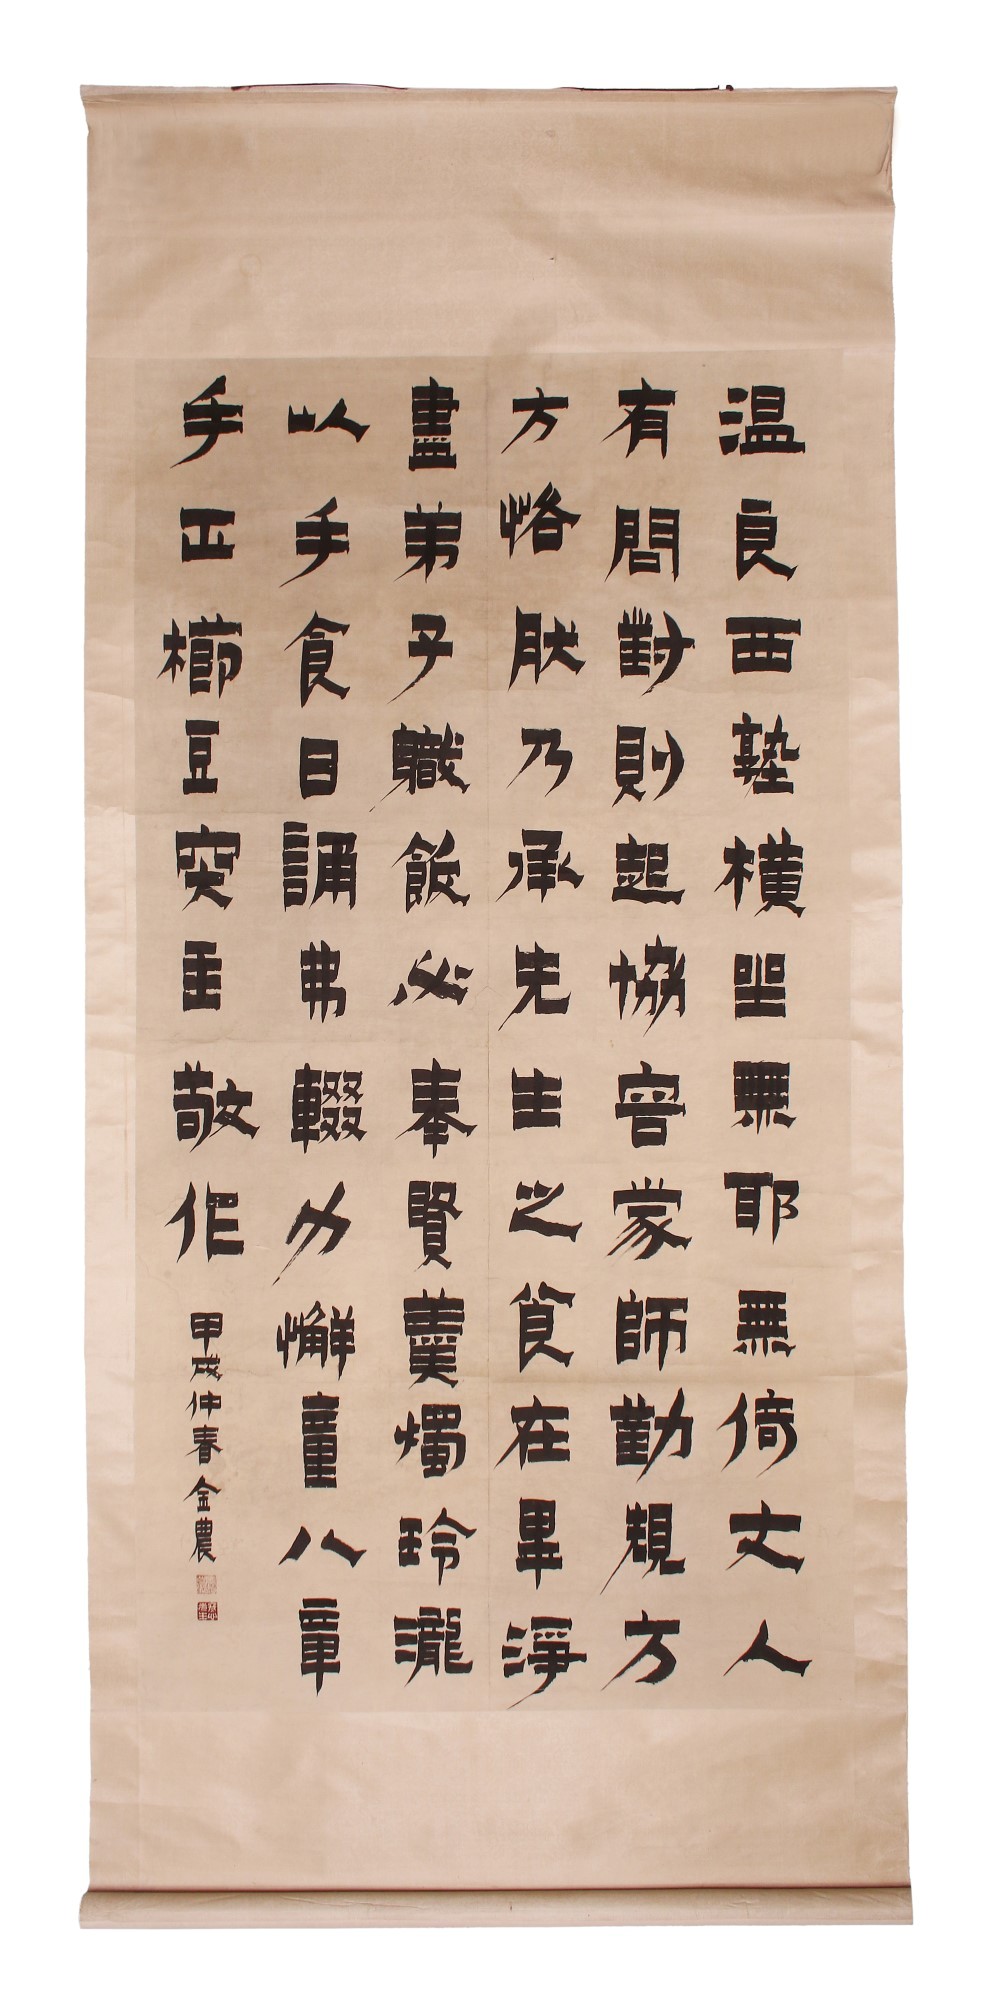 温良西塾橫坐無耶無倚丈人
有問對則起協音蒙師勤規方
方恪肰乃承先生之食在畢淨
盡弟子職飯必奉賢羹燭玲瀧
以手食目誦弗輟力懈童八章
手正櫛豆突主敬作
甲戌仲春金農